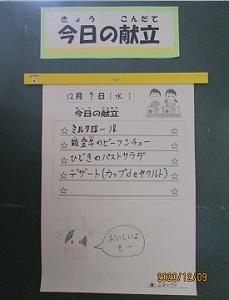 きょう こんだて
今日の献立
12月9日(水)
きょう こんだて
今日の献立
☆ミルクロール☆
☆能登牛のビーフシチュー☆
☆ひじきのパスタサラダ☆
☆デザート(カップdeヤクルト)☆
☆ ☆
おいしいよ
モー
2020/12/09